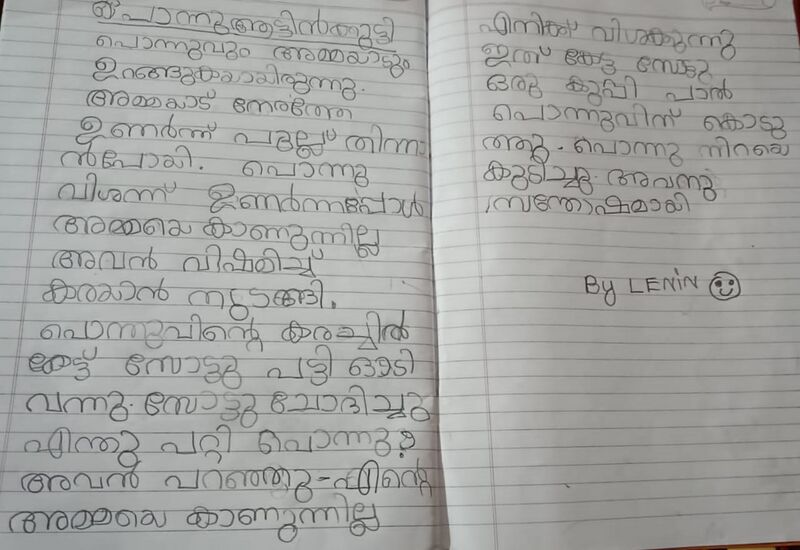 പൊന്നുആട്ടിൻകുട്ടി
പൊന്നുവും അമ്മയാടും
ഉറങ്ങുകയായിരുന്നു.
അമ്മയാട് നേരത്തേ
ഉണർന്ന് പുല്ല് തിന്നാ
ൻപോയി. പൊന്നു
വിശന്ന് ഉണർന്നപ്പോൾ
അമ്മയെ കാണുന്നില്ല
അവൻ വിഷമിച്ച്
കരയാൻ തുടങ്ങി.
പൊന്നുവിന്റെ കരച്ചിൽ
കേട്ട് സോട്ടു പട്ടി ഓടി
വന്നു. സോട്ടു ചോദിച്ചു
എന്തു പറ്റി പൊന്നു?
അവൻ പറഞ്ഞു-എന്റെ
അമ്മയെ കാണുന്നില്ല
എനിക്ക് വിശക്കുന്നു
ഇത് കേട്ട സോട്ടു
ഒരു കുപ്പി പാൽ
പൊന്നുവിന് കൊടു
ത്തു. പൊന്നു നിറയെ
കുടിച്ചു. അവനു
സന്തോഷമായി
By LENIN